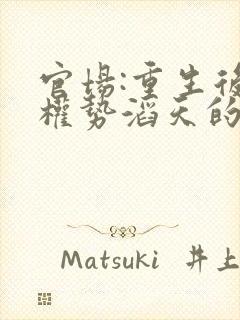 官場:重生後
權勢滔天的
Matsuki 井上